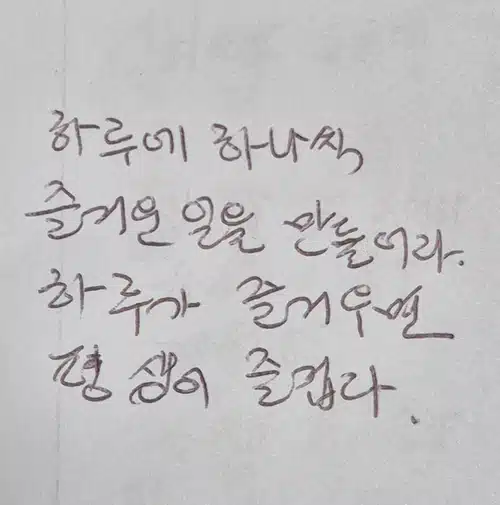 하루에 하나씩
즐거운 일을 만들어라.
하루가 즐거우면
평생이 즐겁다.